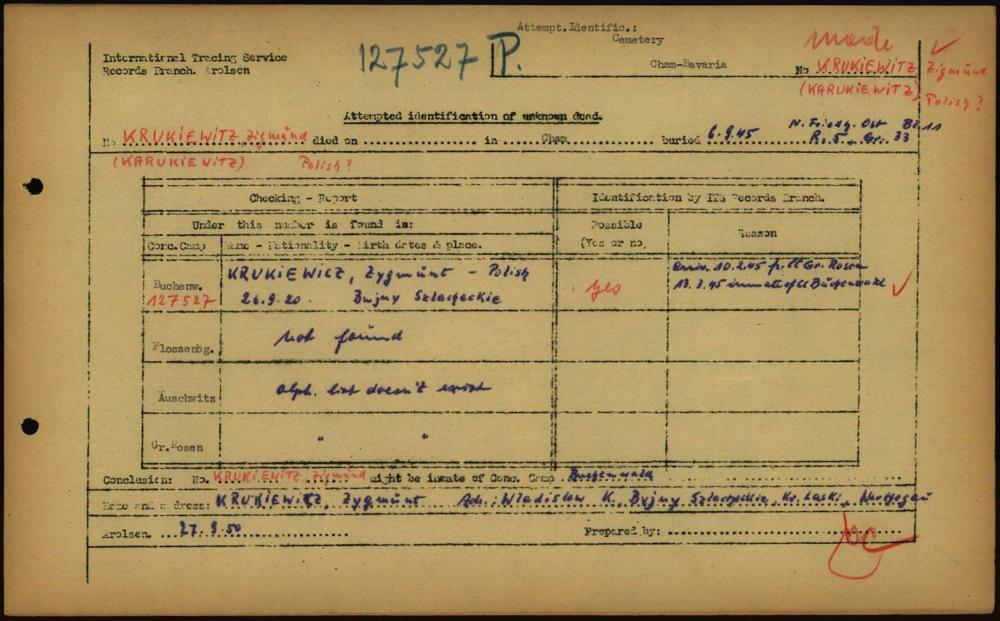 Attempt.Identific.:
Cemetery
Cham-Bavaria
International Tracing Service
Records Branch. Arolsen
127527 P.
made
No KRUKIEWITZ Zigmund
(KARUKIEWITZ) Polish?
Attempted identification of unknown dead.
No KRUKIEWITZ, Zigmund died on in Cham buried 6.9.45 N. Friedh. Ost Bl. 11
R. 5, Gr. 33
(KARUKIEWITZ) Polish?
Checking - Report Identification by ITS Records Branch.
Under this number is found is: Possible
(Yes or no) Reason
Conc.Camp Name - Nationality - Birth dates & place.
Buchenw. 127527 KRUKIEWICZ, Zygmunt - Polish
26.9.20. Bujny Szlacheckie
yes
arriv. 10.2.45 fr. CC Gr. Rosen
13.2.45 inmate of CC Buchenwald
Flossenbg. not found
Auschwitz alph. list doesn't exist
Gr.Rosen " "
Conclusion: No. KRUKIEWITZ, Zigmund might be inmate of Conc. Camp Buchenwald
Name and address: KRUKIEWICZ, Zygmunt Adr.: Wladislaw K., Bujny Szlacheckie, Kr. Laski, Warthegau
Arolsen. 27.9.50 Prepared by: